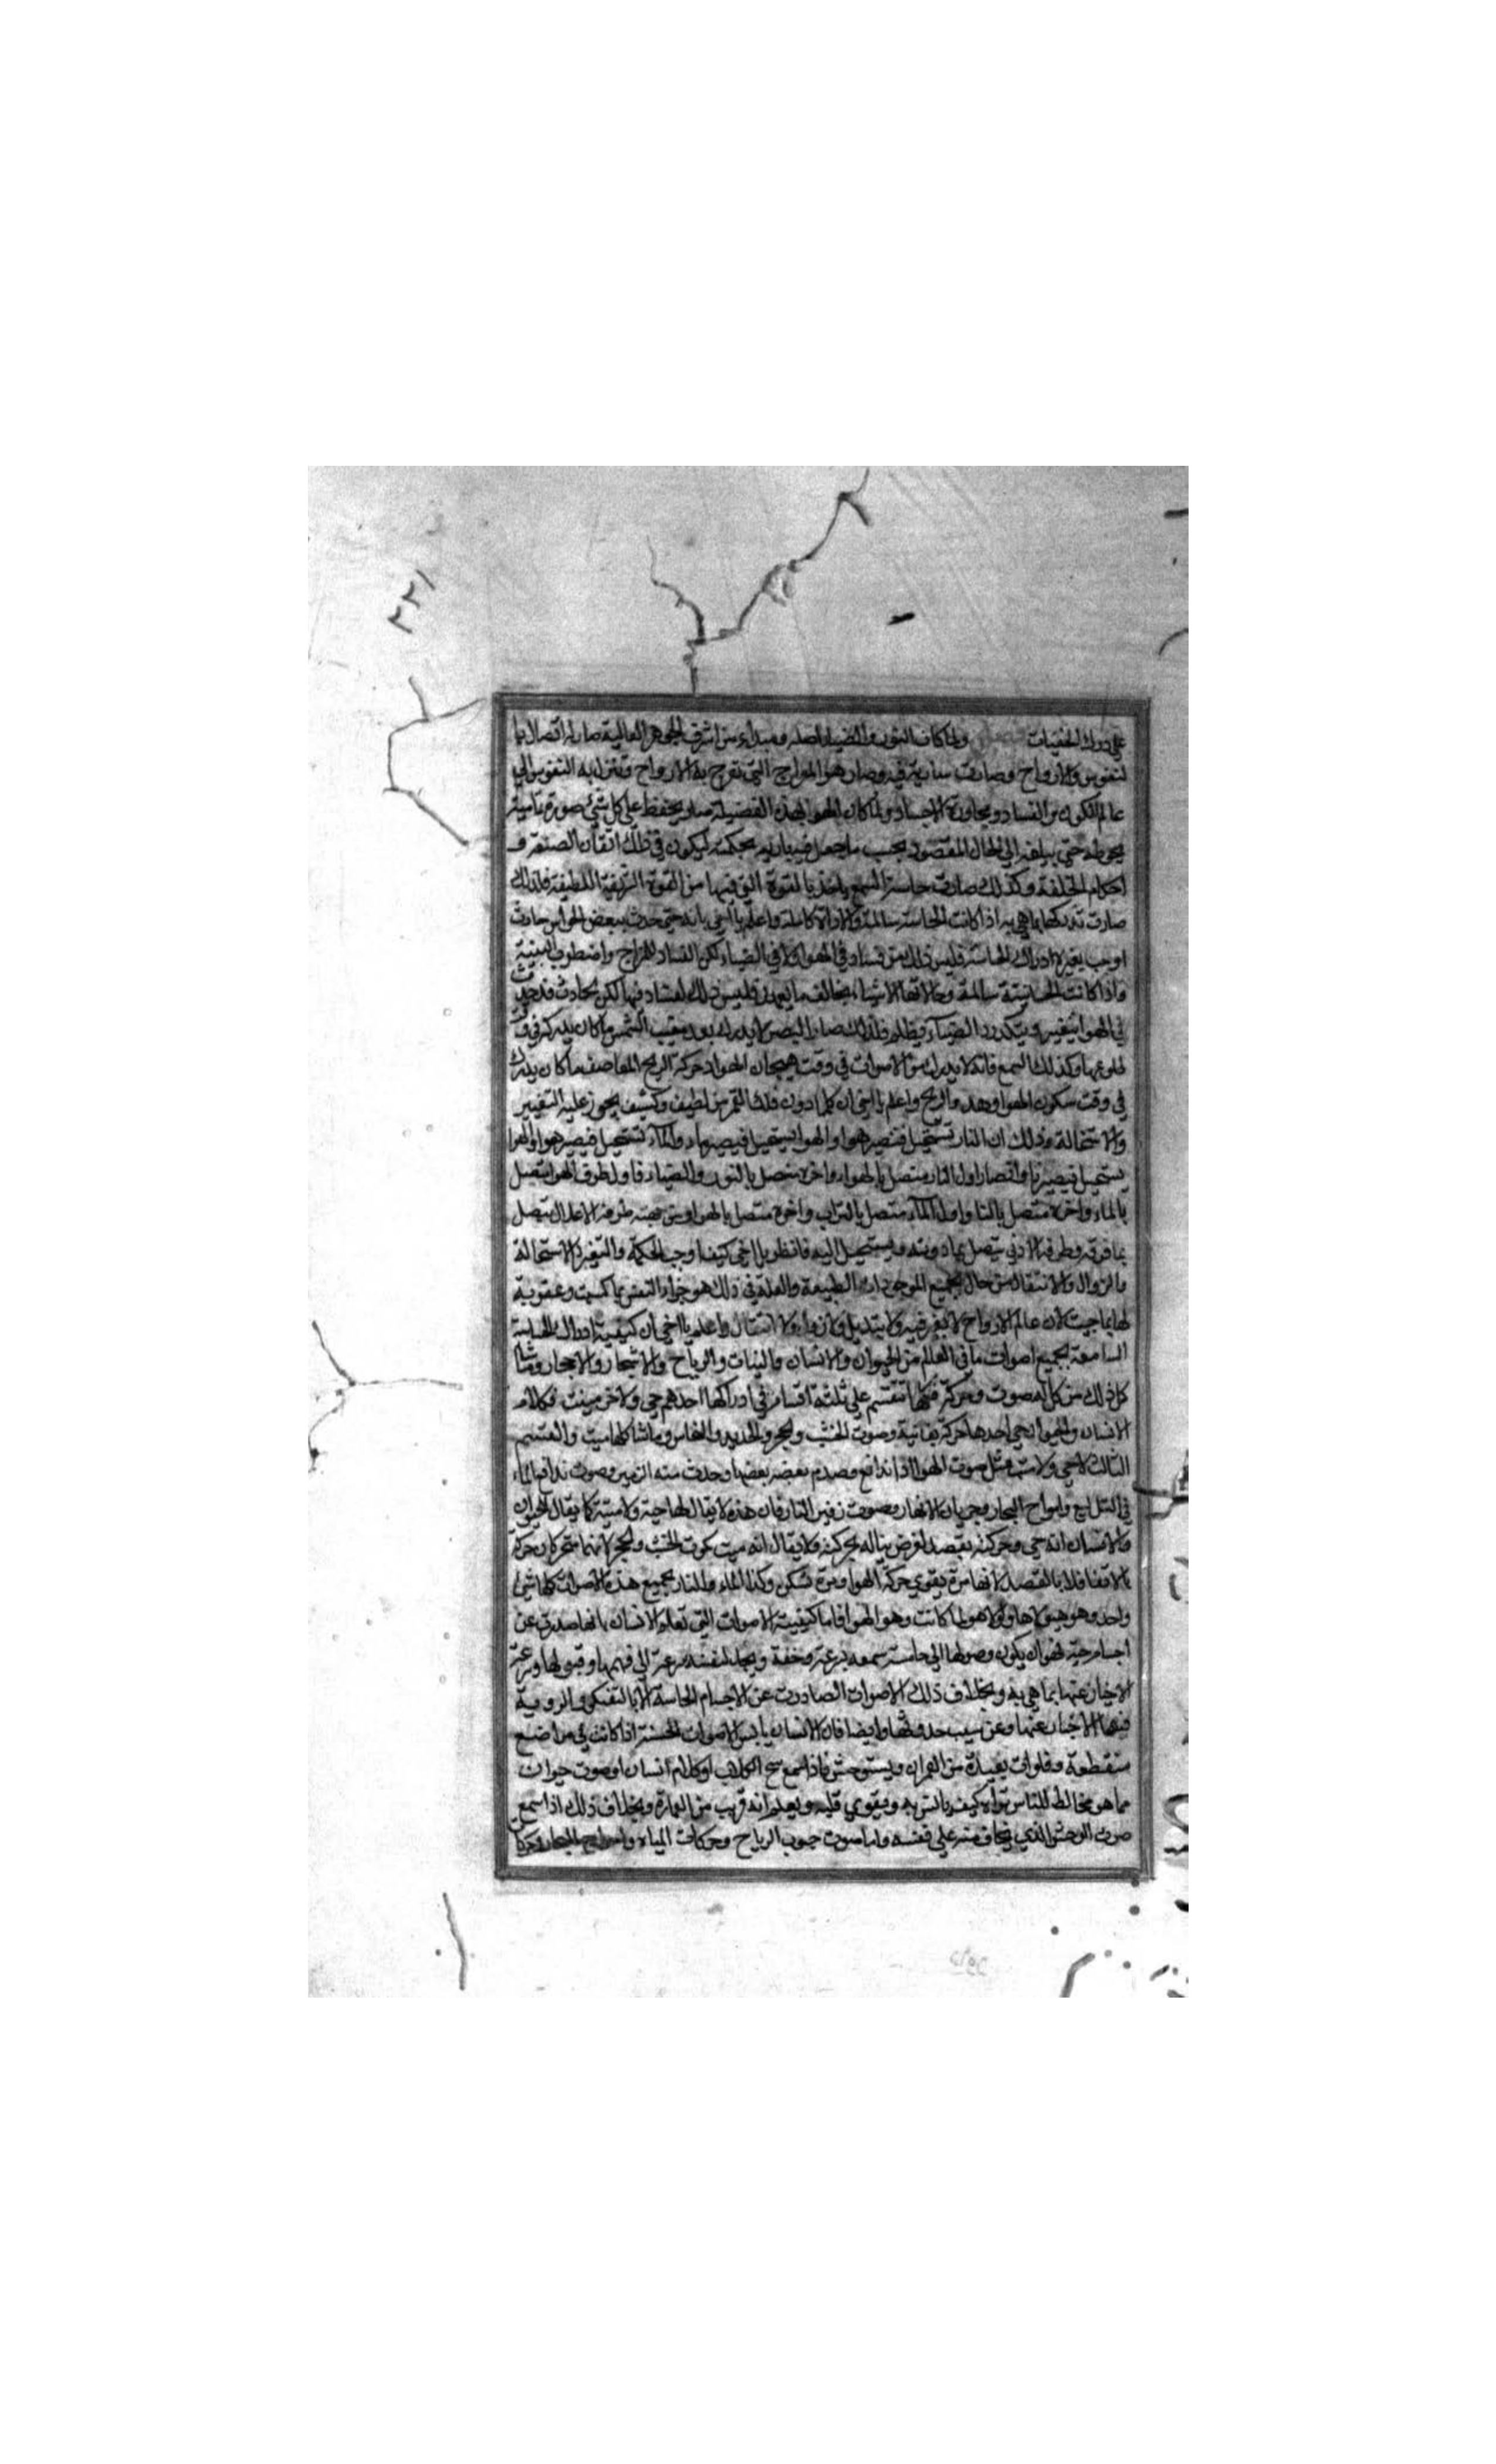 ٢٢١
على درك الخفيات فصل ولما كان النور والضياء اصله ومبداءه من اشرف الجواهر العالية صار له اتصال با
لنفوس والارواح وصارت سارية فيه وصار هو المعراج التي تعرج به الارواح وتنزل به النفوس الي
عالم الكون والفساد ومجاورة الاجساد ولما كان الهوا لهذه الفضيلة صار يحفظ على كل شيء صورة تامية
يحوطه حتى يبلغه الى الحال المقصود بحسب ما جعل فيه باريه بحكمته ليكون في ذلك اتقان الصنعة و
احكام الخلقة وكذلك صارت حاسة السمع ياخذ بالقوة التي فيها من القوة الشريفة اللطيفة فلذلك
صارت تدركها بما هي به اذا كانت الحاسة سالمة والاداة كاملة واعلم يا اخي بانه متى حدث ببعض الحواس حادث
اوجب تغيره ادراك الحاسة فليس ذلك من فساد في الهوا ولا في الضياء لكن الفساد المزاج واضطراب البنية
واذا كانت الحاسة سالمة وحالاتها الاشياء بخالف ما يعهد فليس ذلك لفساد فيها لكن لحادث قد حدث
في الهوا يتغير ويتكدر والضياء ويظلم فلذلك صار البصر لا يدرك بعد مغيب الشمس ما كان يدركه في وقت
طلوعها وكذلك السمع فانه لا يدرك من الاصوات في وقت هيجان الهوا وحركة الريح العاصف ما كان يدرك
في وقت سكون الهوا وهدو الريح واعلم يا اخي ان كلما دون فلك القمر من لطيف وكثيف يجوز عليه التغيير
والاستحالة وذلك ان النار تستحيل فتصير هوا والهوا يستحيل فيصير ماء والماء تستحيل فيصير هوا والهوا
يستحيل فيصير نارا فصار اول النار متصل بالهواء واخره متصل بالنور والضياء واول طرف الهوا متصل
بالماء واخره متصل بالنار واول الماء متصل بالتراب واخره متصل بالهوا طرفه الاعلا يتصل
بما فوقه وطرفه الادنى يتصل بما دونه ويستحيل اليه فانظر يا اخي كيف اوجب الحكمة والتغير الاستحالة
والزوال والانتقال من حال لجميع الموجودات الطبيعة والعلة في ذلك هو جزاء النفس بما كسبت وعقوبة
لها بما جنت لان عالم الارواح لا تغير فيه ولا تبديل ولا زوال ولا انتقال واعلم يا اخي ان كيفية ادراك الحاسة
السامعة لجميع اصوات ما في العالم من الحيوان والانسان والنبات والرياح والاشجار والاحجار وما شا
كل ذلك من كل له صوت وحركة فكلها تنقسم على ثلثة اقسام في ادراكها احدهم حي والاخر ميت فكلام
الانسان والحيوان حي احدها حركة نفسانية وصوت الخشب والحجر والحديد والنحاس وما شاكلها ميت والقسم
الثالث لا حي ولا ميت مثل صوت الهوا اذا اندافع وصدم بعضه بعضا وحدث منه الزمير وصوت تدافع الماء
في التلابع وامواج البحار وجريان الانهار وصوت زفير النار فان هذه لا يقال لها حية ولا ميتة كما يقال للحيوان
والانسان انه حي وحركته بقصد لغرض يناله بحركته ولا يقال انه ميت كموت الخشب والحجر لانهما متحركان حركة
بالاتفاق لا بالقصد لانها مرة يقوي حركة الهوا ومرة تسكن وكذا الماء والنار لجميع هذه الاصوات كلها شيء
واحد وهو هيولاها ولولا هو لما كانت وهو الهوا فاما كيفية الاصوات التي تعلم الانسان بانها صدرت عن
اجسام حية فهو ان يكون وصولها الى حاسة سمعه بسرعة وخفة ويجد لنفسه سرعة الى فهمها وقبولها وسرعة
الاخبار عنها بما هي به وبخلاف ذلك الاصوات الصادرة عن الاجسام الحاسة الا بالتفكر والروية
فيها الاخبار عنها وعن سبب حدوثها وايضا فان الانسان يانس الاصوات الحسنة اذا كانت في مواضع
منقطعة وفلوات بعيدة من العمران ويستوحش فاذا سمع نبح الكلاب او كلام انسان او صوت حيوان
مما هو مخالط للناس تراه كيف يانس به ويقوي قلبه ويعلم انه قريب من العمارة وبخلاف ذلك اذا سمع
صوت الوحش الذي يخاف منه على نفسه واما صوت هبوب الرياح وحركات المياه وامواج البحار وحركا